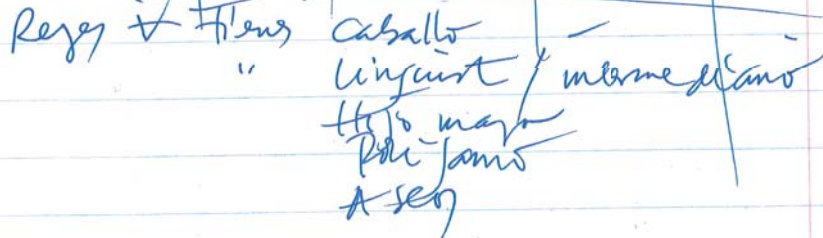 Reyes + Tiens caballo –
" linguist / intermediario
Hijo mayor
Polígamo